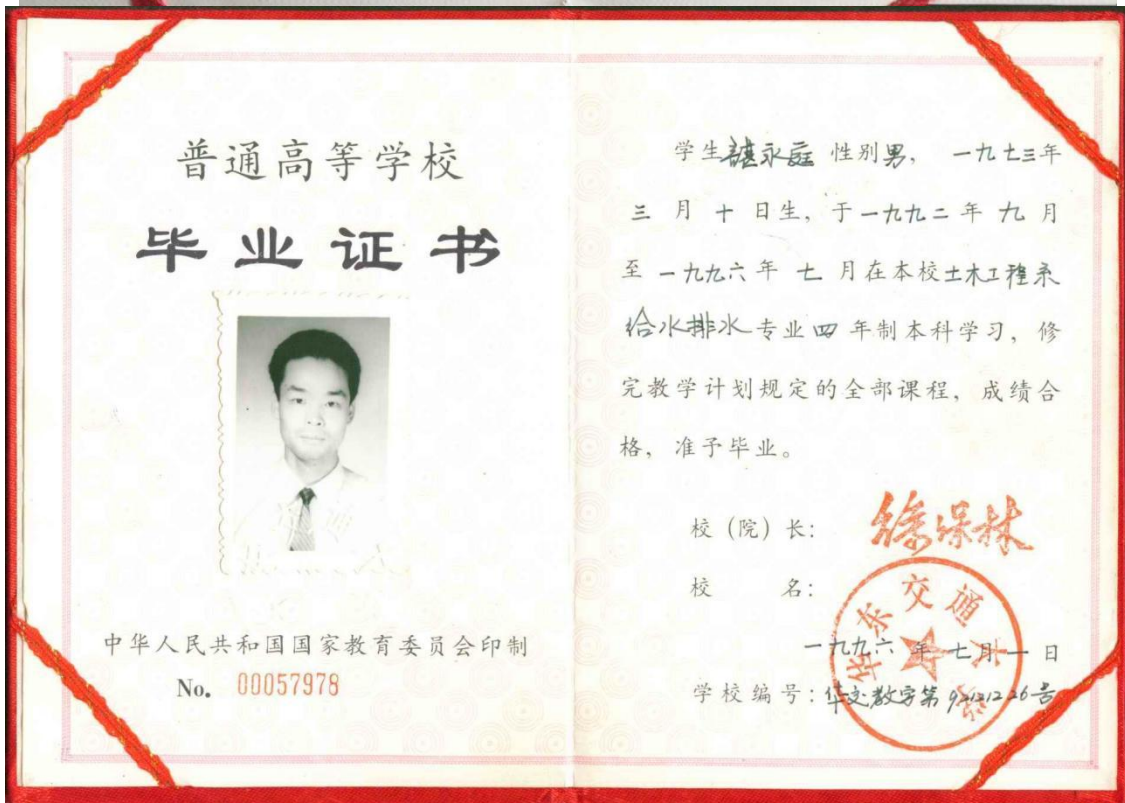 普通高等学校
毕业证书
中华人民共和国国家教育委员会印制
No. 00057978
学生 永庭 性别男, 一九七三年
三月十日生, 于一九九二年九月
至一九九六年七月在本校土木工程系
给水排水专业四年制本科学习, 修
完教学计划规定的全部课程, 成绩合
格, 准予毕业。
校 (院) 长: 徐保林
校 名:
华东交通大学
一九九六年七月一日
学校编号: 华交教字第 号